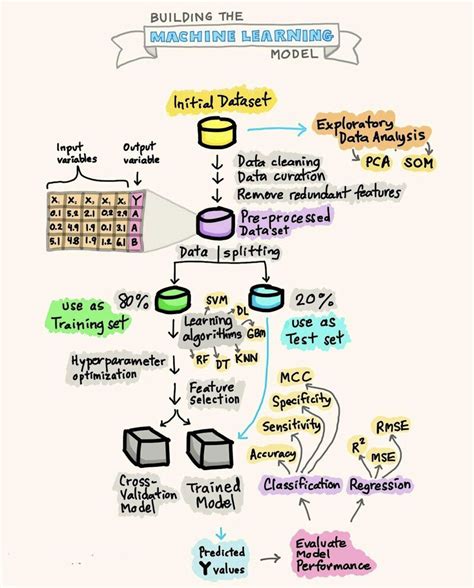 BUILDING THE
MACHINE LEARNING
MODEL
Initial Dataset
Exploratory
Data Analysis
PCA SOM
Input
variables
Output
variable
Data cleaning
Data curation
Remove redundant features
X, X, X, X, X, Y
0.1 5.2 2.1 0.2 2.9 A
0.2 4.9 1.9 0.2 3.1 A
5.1 4.8 1.9 1.2 6.1 B
Pre-processed
Dataset
Data splitting
80%
20%
use as
Training set
use as
Test set
Learning
algorithms
SVM
DL
GBM
KNN
DT
RF
Hyperparameter
optimization
Feature
selection
Cross-
Validation
Model
Trained
Model
MCC
Specificity
Sensitivity
Accuracy
Classification
RMSE
R²
MSE
Regression
Predicted
Y values
Evaluate
Model
Performance